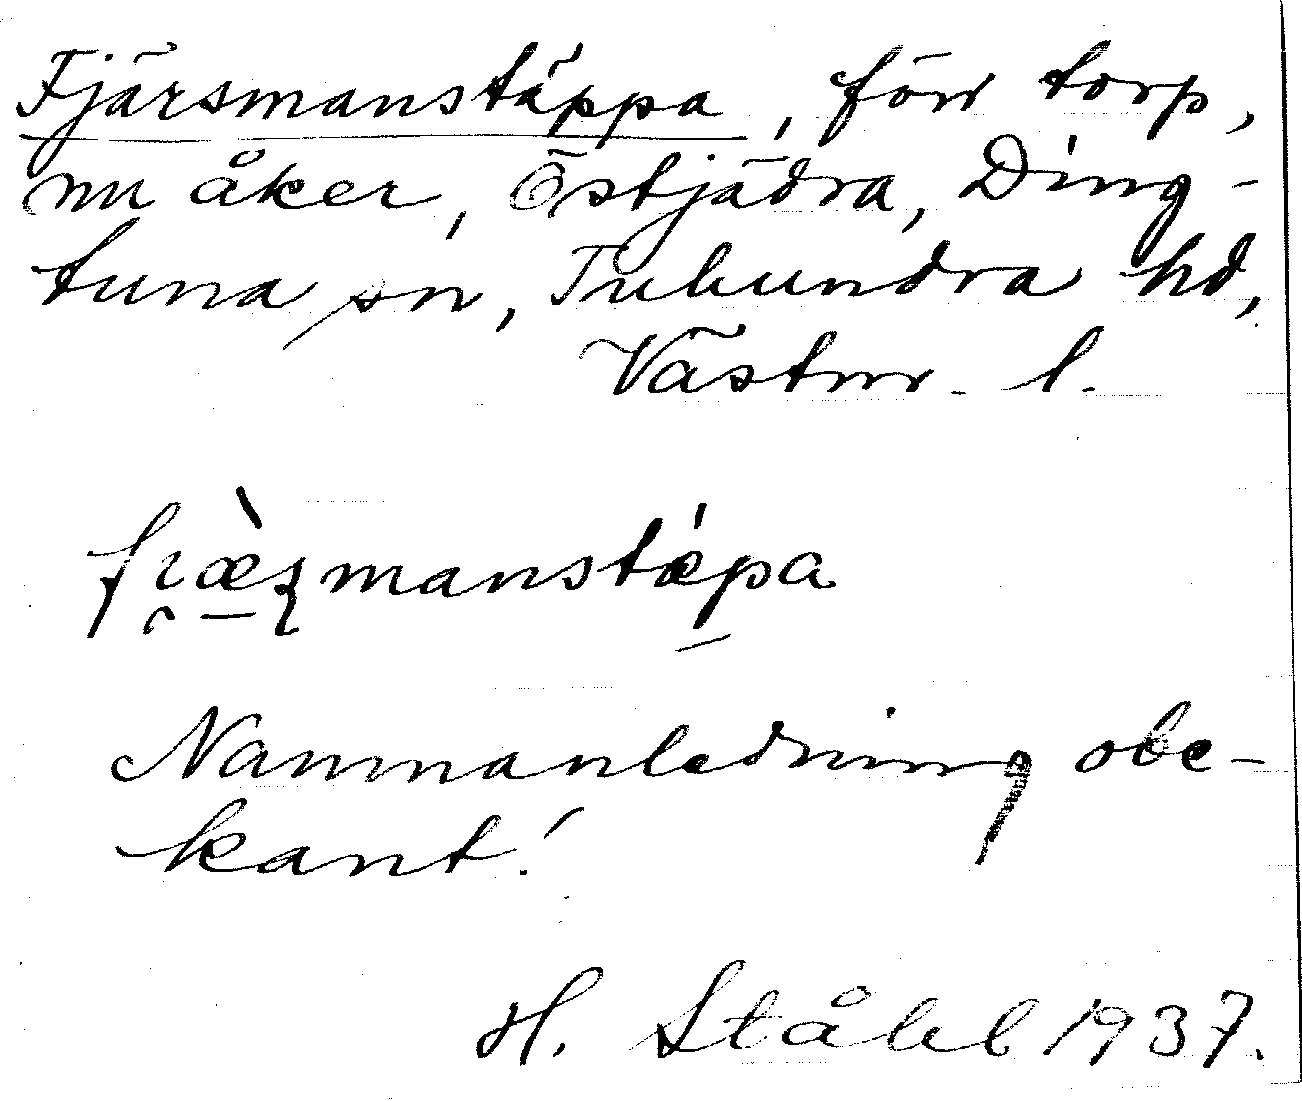 Fjärsmanstäppa, förr torp,
nu åker, Östjädra, Ding-
tuna sn, Tuhundra hd,
Västm. l.
Namnanledning obe-
kant!
H. Ståhl 1937.